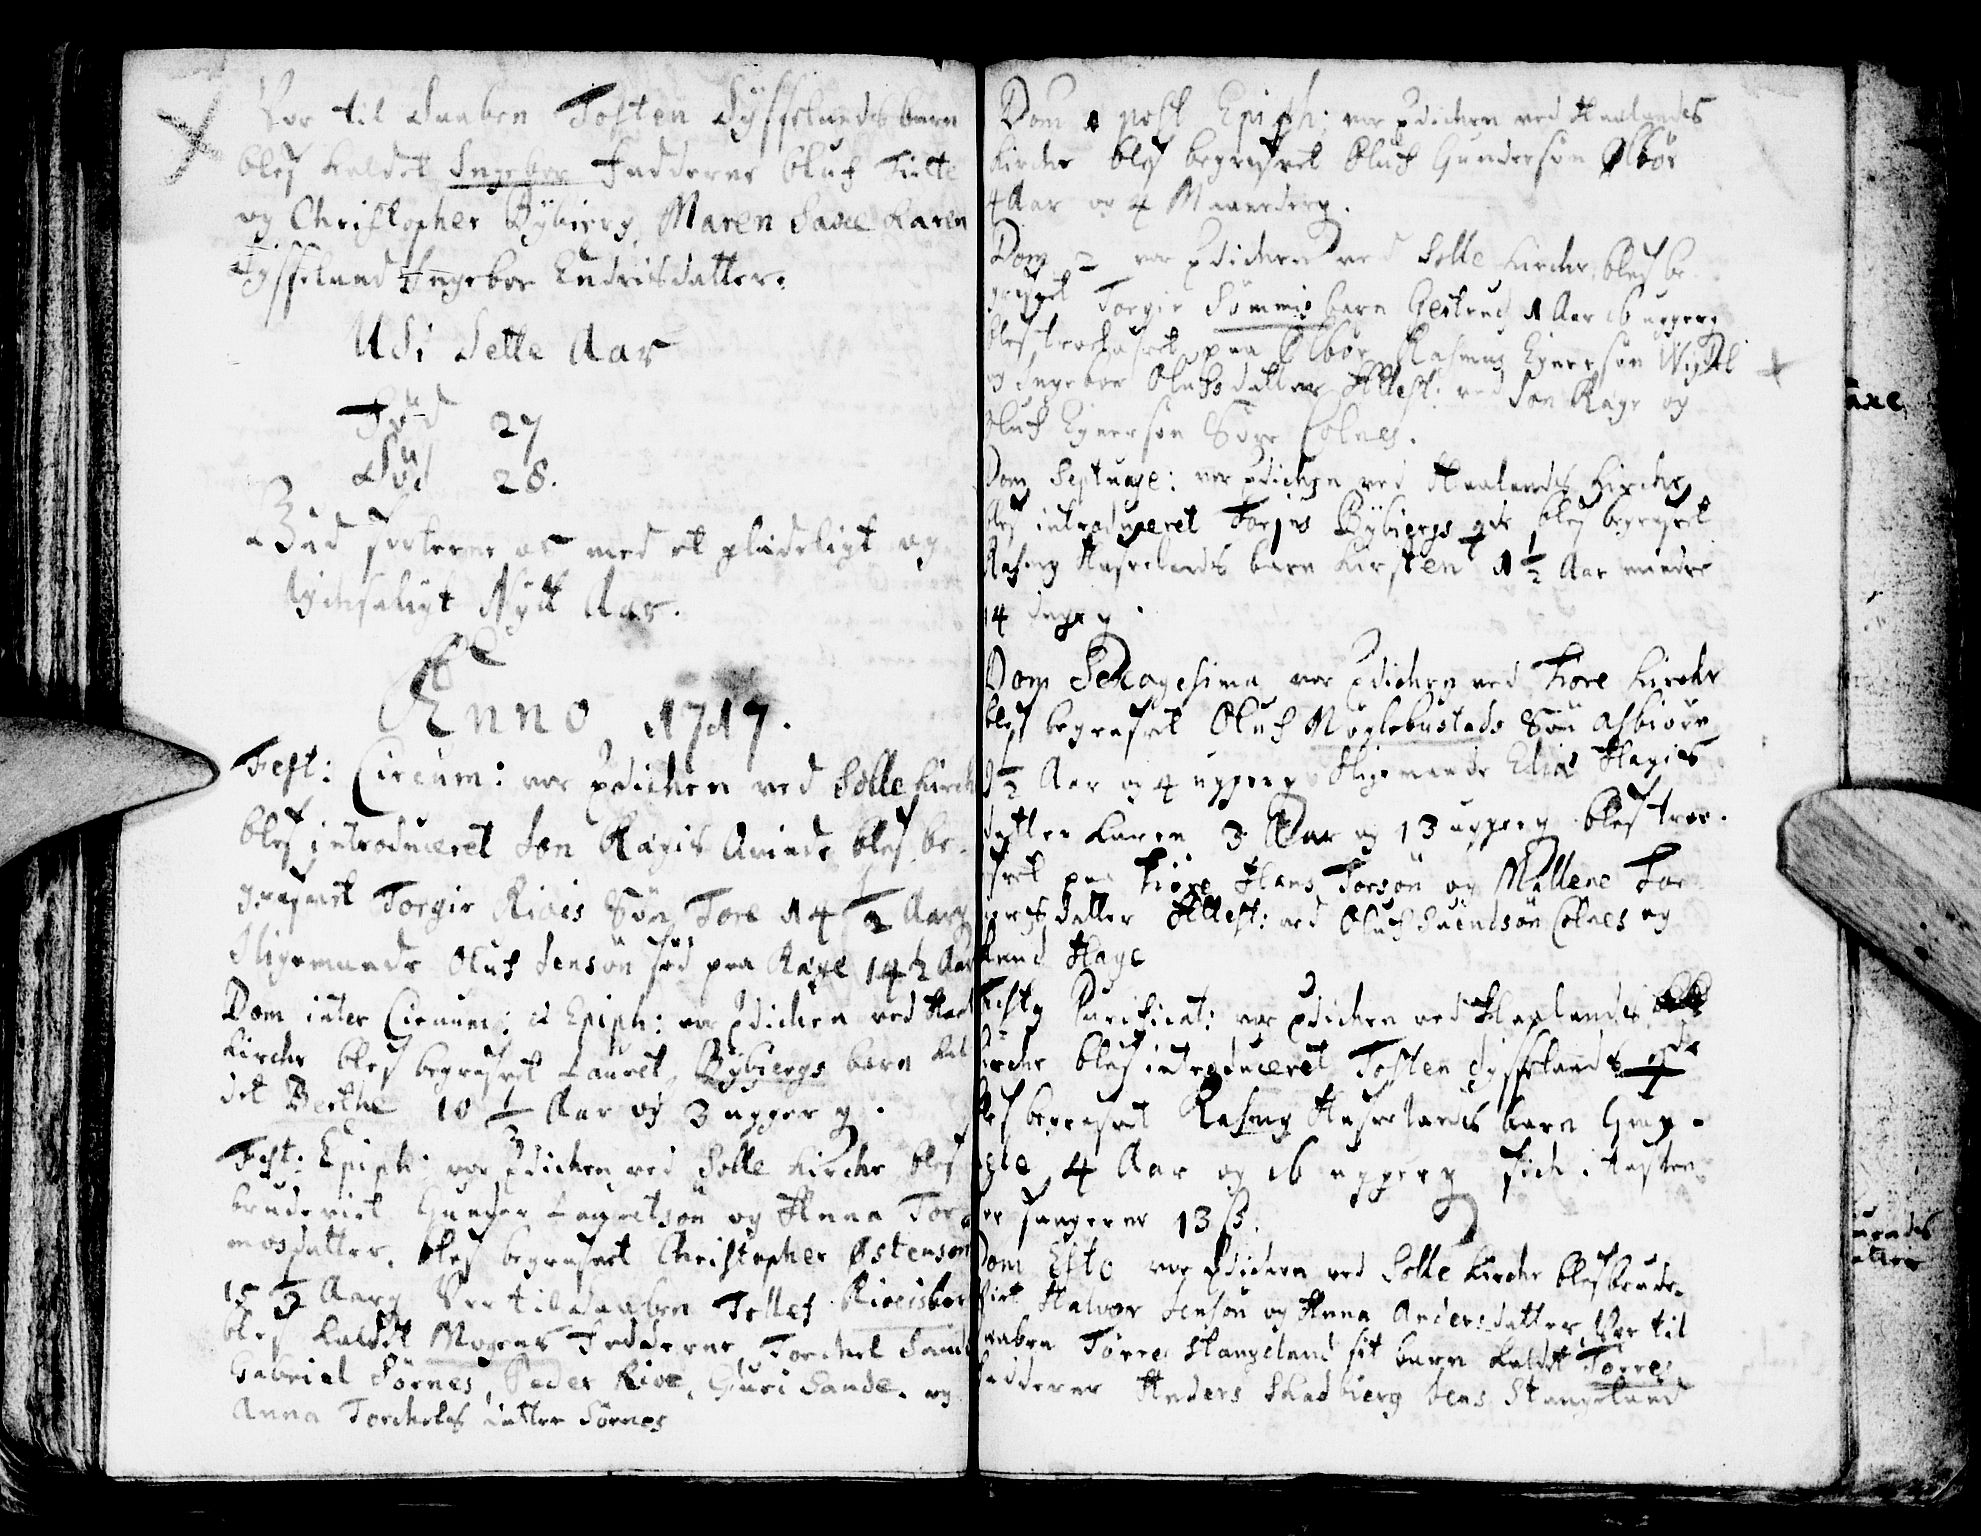 Var til daaben Tosten Dysselands barn
blef kaldet Ingebor Fadderne Oluf Tiøtte
og Christopher Bybierg, Maren Save Karen
Dysseland Ingebor Endrisdatter.
Udi dette Aar
Fød 27
Død 28.
Gud forlene os med et glædeligt og
lychsaligt Nÿtt Aar.
Anno 1717.
Fest: Circum: var Prædichen ved Solle Kirch
blef introduceret Jon Ræges Qvinde blef be-
gravet Torgir Risis Søn Tore 14 1/2 Aarg
Sligemaade Oluf Jensøn fød paa Ræge 14 1/2 Aar
Dom inter Circum: et Epiph: var Prædichen ved Haal
Kirche blef begravet Lauret Bybiergs barn kal
det Berthe 10 1/2 Aar og 3 uger g.
Fest: Epiph: var Prædichen ved Solle Kirche blef
brudeviet Gunder Lauretsøn og Anna Tor-
mosdatter. blef begravet Christopher Østensøn
15 1/2 Aarg Var til daaben Tellef Risisbar
blef kaldet Mogens Fadderne Torchel Sande
Gabriel Sørnes, Peder Rise, Guri Sande. og
Anna Torchels datter Sørnes
Dom 1 post Epiph: var Prædichen ved Haalands
Kirche blef begravet Oluf Gundersøn Ølbør
4 Aar og 4 Maaneder g.
Dom 2 var Prædichen ved Solle Kirche, blef be-
gravet Torgir Sømmis barn Gertrud 1 Aar 16 uger g
blef trolofvet paa Ølbør Rasmus Ejnersøn Wigdel
og Ingebor Olufsdatter Attest: ved Jon Ræge og
Oluf Ejnersøn Søre Colnes.
Dom Septuage: var Prædichen ved Haalands Kirche
blef introduceret Torjus Bybiergs qde, blef begravet
Rasmg Hafrelands barn Kirsten 1 1/2 Aar mindre
14 dage g.
Dom Sexagesima var Prædichen ved Tiøre Kirche
blef begravet Oluf Møglebustads Søn Asbiørn
1/2 Aar og 4 uger g Sligemaade Elias Hagis
datter Karen 3 Aar og 13 uger g blef trolo-
fvet paa Tiøre Hans Torsøn og Mallene Tor
gersdatter Attest: ved Oluf Suendsøn Colnes og
Knud Hage
Festo Purificat: var Prædichen ved Haalands
Kirche blef introduceret Tosten Dysselands qde
blef begravet Rasmg Hafrelands barn Gun-
4 Aar og 16 uger g
13 ß.
Dom Esto var Prædichen ved Solle Kirche blef brude-
viet Halvor Jensøn og Anna Andersdatter, Var til
daaben Tørres Stangeland sit barn kaldet Tørres
Fadderne Anders Skadbierg Jens Stangeland